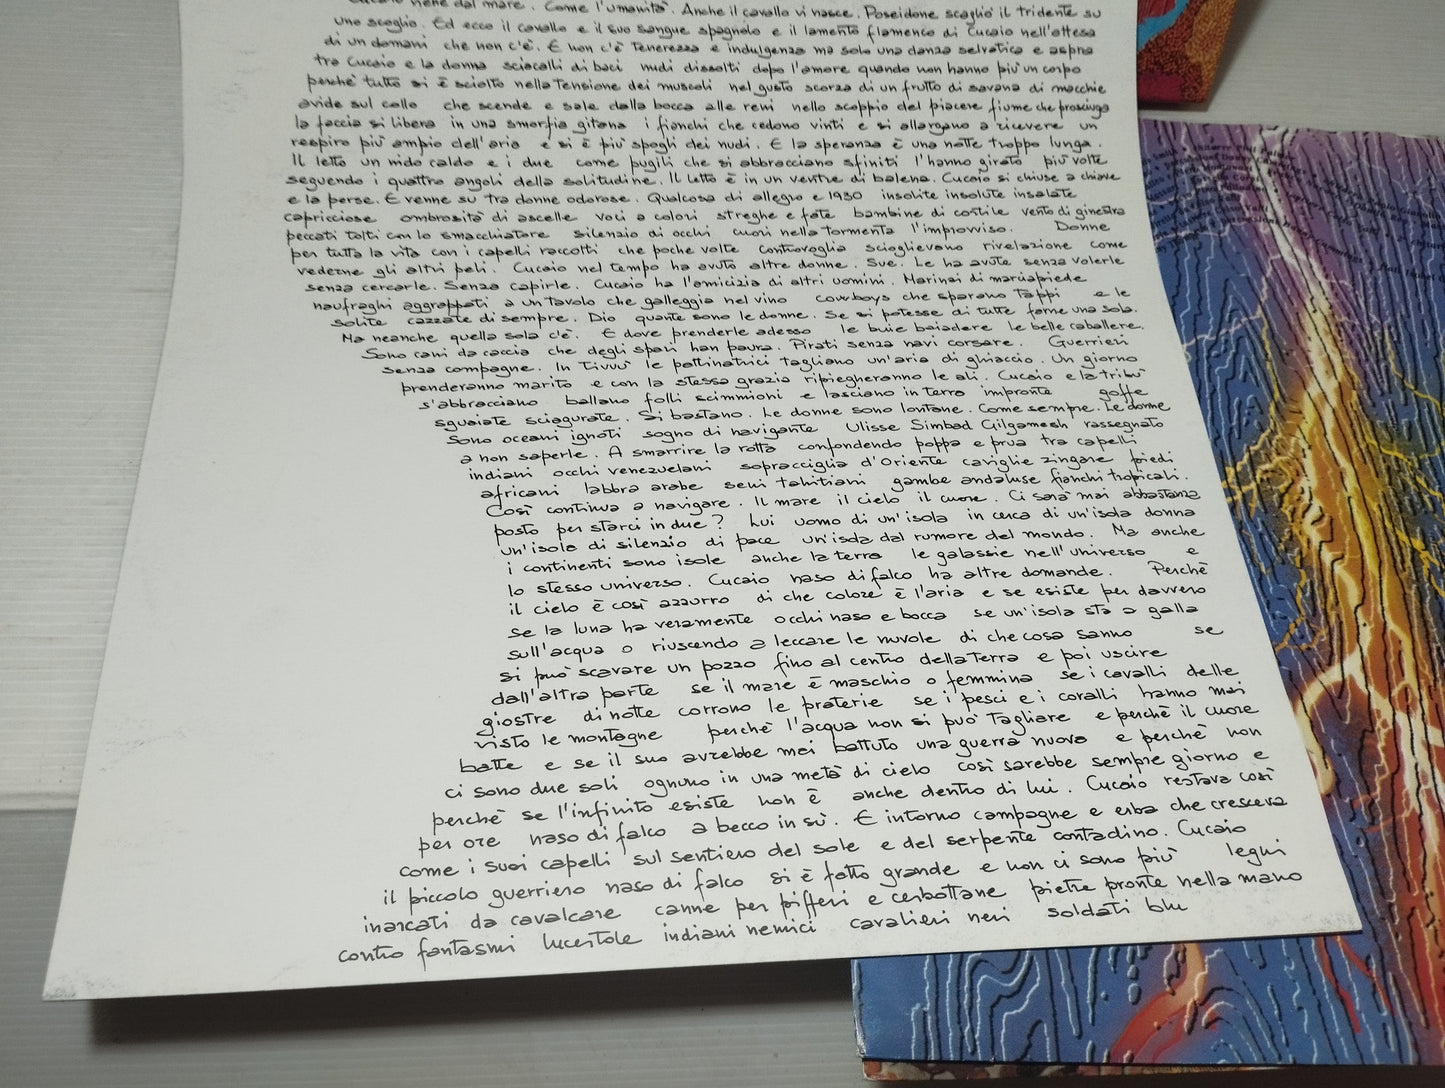 Cucaio viene dal mare. Come l'umanità. Anche il cavallo vi nasce. Poseidone scagliò il tridente su
uno scoglio. Ed ecco il cavallo e il suo sangue spagnolo e il lamento flamenco di Cucaio nell'attesa
di un domani che non c'è. E non c'è tenerezza e indulgenza ma solo una danza selvatica e aspra
tra Cucaio e la donna sciacalli di baci nudi dissolti dopo l'amore quando non hanno più un corpo
perchè tutto si è sciolto nella tensione dei muscoli nel gusto scorza di un frutto di savana di macchie
avide sul collo che scende e sale dalla bocca alle reni nello scoppio del piacere fiume che prosciuga
la faccia si libera in una smorfia gitana i fianchi che cedono vinti e si allargano a ricevere un
respiro più ampio dell'aria e si è più spogli dei nudi. E la speranza è una notte troppo lunga.
Il letto un nido caldo e i due come pugili che si abbracciano sfiniti l'hanno girato più volte
seguendo i quattro angoli della solitudine. Il letto è in un ventre di balena. Cucaio si chiuse a chiave
e la perse. E venne su tra donne odorose. Qualcosa di allegro e 1930 insolite insolute insalate
capricciose ombrosità di ascelle voci a colori streghe e fate bambine di cortile vento di ginestra
peccati tolti con lo smacchiatore silenzio di occhi cuori nella tormenta l'improvviso. Donne
per tutta la vita con i capelli raccolti che poche volte controvoglia scioglievano rivelazione come
vederne gli altri peli. Cucaio nel tempo ha avuto altre donne. Sue. Le ha avute senza volerle
senza cercarle. Senza capirle. Cucaio ha l'amicizia di altri uomini. Marinai di marciapiede
naufraghi aggrappati a un tavolo che galleggia nel vino cowboys che sparano tappi e le
solite cazzate di sempre. Dio quante sono le donne. Se si potesse di tutte farne una sola.
Ma neanche quella sola c'è. E dove prenderle adesso le buie baiadere le belle caballere.
Sono cani da caccia che degli spari han paura. Pirati senza navi corsare. Guerrieri
senza compagne. In tivvù le pattinatrici tagliano un'aria di ghiaccio. Un giorno
prenderanno marito e con la stessa grazia ripiegheranno le ali. Cucaio e la tribù
s'abbracciano ballano folli scimmioni e lasciano in terra impronte goffe
sguaiate sciagurate. Si bastano. Le donne sono lontane. Come sempre. Le donne
sono oceani ignoti sogno di navigante Ulisse Simbad Gilgamesh rassegnato
a non saperle. A smarrire la rotta confondendo poppa e prua tra capelli
indiani occhi venezuelani sopracciglia d'Oriente caviglie zingare piedi
africani labbra arabe seni tahitiani gambe andaluse fianchi tropicali.
Così continua a navigare. Il mare il cielo il cuore. Ci sarà mai abbastanza
posto per starci in due? Lui uomo di un'isola in cerca di un'isola donna
un'isola di silenzio di pace un'isola dal rumore del mondo. Ma anche
i continenti sono isole anche la terra le galassie nell'universo e
lo stesso universo. Cucaio naso di falco ha altre domande. Perchè
il cielo è così azzurro di che colore è l'aria e se esiste per davvero
se la luna ha veramente occhi naso e bocca se un'isola sta a galla
sull'acqua o riuscendo a leccare le nuvole di che cosa sanno se
si può scavare un pozzo fino al centro della terra e poi uscire
dall'altra parte se il mare è maschio o femmina se i cavalli delle
giostre di notte corrono le praterie se i pesci e i coralli hanno mai
visto le montagne perchè l'acqua non si può tagliare e perchè il cuore
batte e se il suo avrebbe mai battuto una guerra nuova e perchè non
ci sono due soli ognuno in una metà di cielo così sarebbe sempre giorno e
perchè se l'infinito esiste non è anche dentro di lui. Cucaio restava così
per ore naso di falco a becco in sù. E intorno campagne e erba che cresceva
come i suoi capelli sul sentiero del sole e del serpente contadino. Cucaio
il piccolo guerriero naso di falco si è fatto grande e non ci sono più legni
inarcati da cavalcare canne per pifferi e cerbottane pietre pronte nella mano
contro fantasmi lucertole indiani nemici cavalieri neri soldati blu